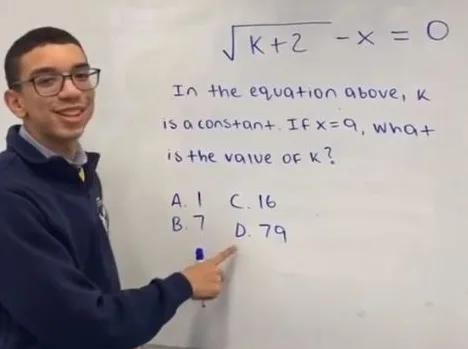 √K+2 - x = 0
In the equation above, K
is a constant. If x=9, what
is the value of K?
A. 1 C. 16
B. 7 D. 79